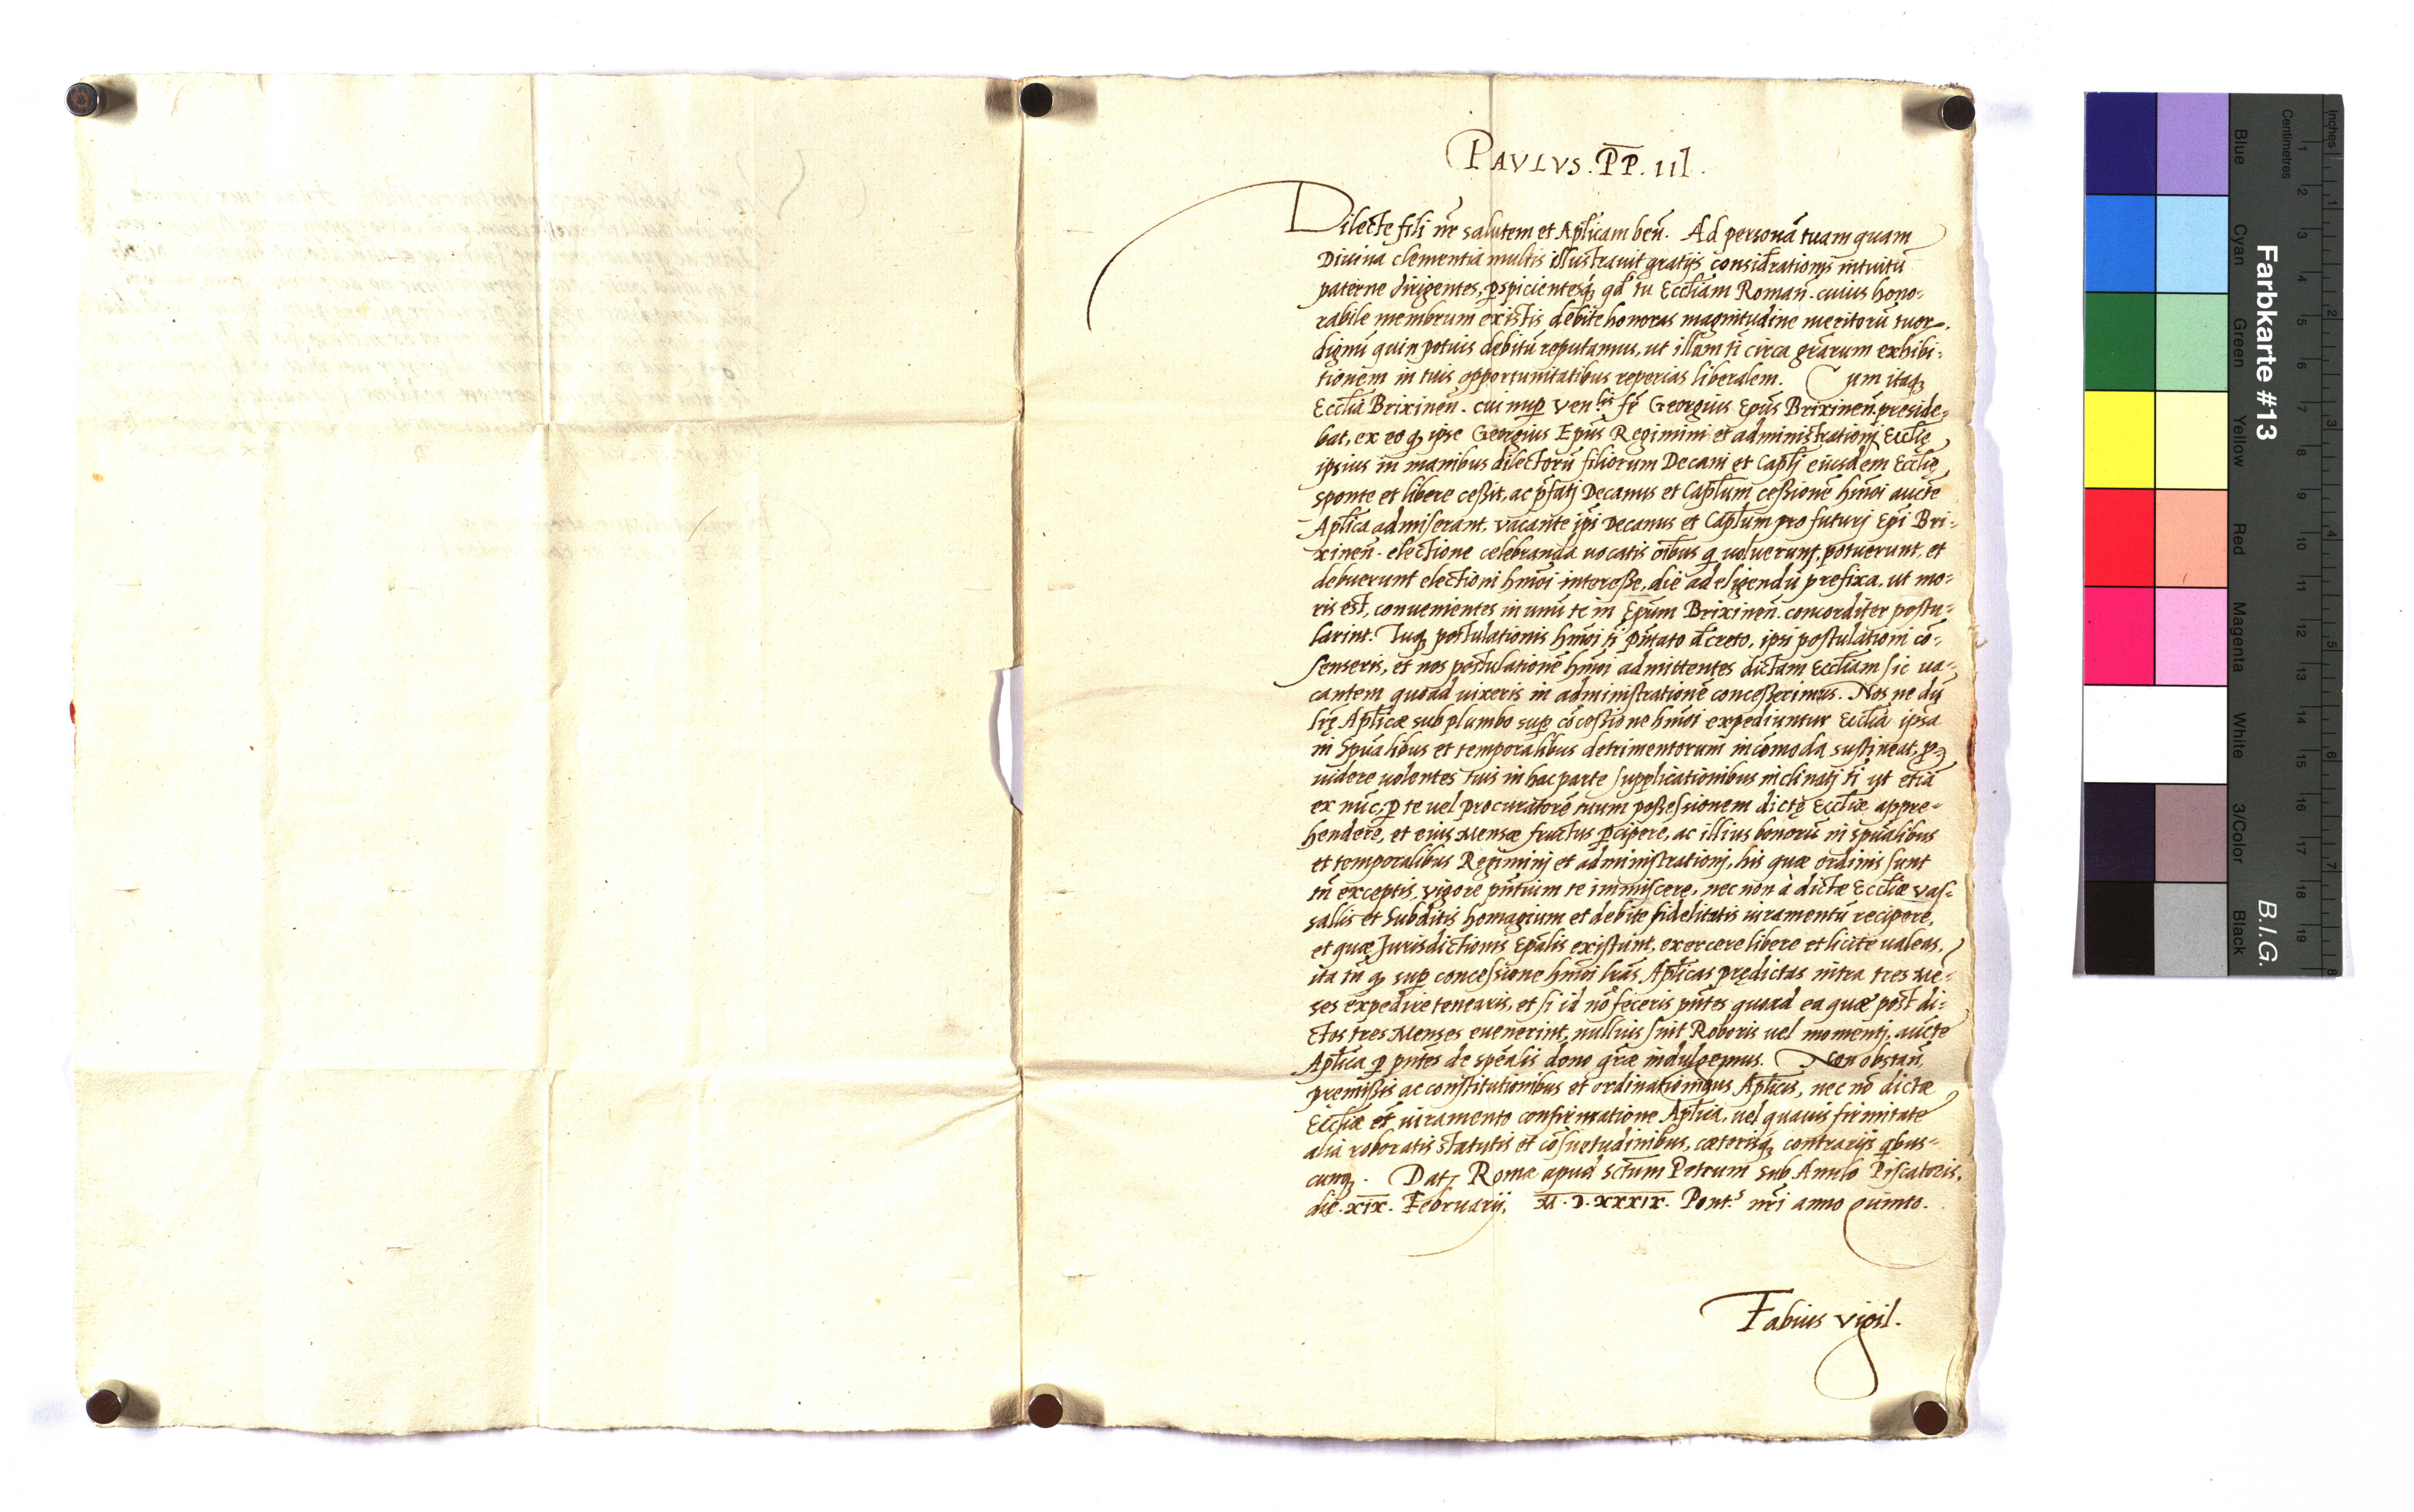 PAVLVS. P̅P̅. III.
Dilecte fili nr̄ salutem et Apl̄icam ben̄. Ad personā tuam quam
Diuina clementia multis illustrauit gratijs considrationis intuitū
paterne dirigentes, ꝑspicientesq; qd̄ tu Eccl̄iam Roman̄. cuius hono-
rabile membrum existis debite honoras magnitudine meritorū tuor.
dignū quin potius debitū reputamus, ut illam ti circa gr̄arum exhibi-
tionem in tuis opportunitatibus reperias liberalem. Cum itaq;
Eccl̄ia Brixinen̄. cui nuꝑ Ven.lis fr̄ Georgius Ep̄us Brixinen̄. preside-
bat, ex eo q; ipse Georgius Ep̄us Regimini et administrationj Eccl̄ię
ipsius in manibus dilectorū filiorum Decani et Capl̄j eiusdem Eccl̄ię
sponte et libere ceßit, ac p̄fatj Decanus et Capl̄um ceßionē hm̄oi aucte
Apl̄ica admiserant, vacante ip̄i Decanus et Capl̄um pro futurj Ep̄i Bri-
xinen̄. electione celebranda uocatis oībus q uoluerunt, potuerunt, et
debuerunt electioni hm̄oi intereße, die ad eligendū prefixa, ut mo-
ris est, conuenientes in unū te in Ep̄um Brixinen̄. concorditer postu-
larint. Tuq; postulationis hm̄oi ti p̄ntato dcreto, ipsi postulationi cō-
senseris, et nos postulationē hm̄oi admittentes dictam Eccl̄iam sic ua-
cantem quoad uixeris in administrationē conceßerimus. Nos ne dū
lr̄ę Apl̄icæ sub plumbo suꝑ cōceßione hm̄oi expediuntur Eccl̄ia ipsa
in Sp̄ualibus et temporalibus detrimentorum incōmoda sustineat, ꝓ
uidere uolentes tuis in hac parte supplicationibus inclinatj ti ut etiā
ex nūc ꝑ te uel procuratorē tuum poßessionem dictę Eccl̄iæ appre-
hendere, et eius Mensæ fructus ꝑcipere, ac illius bonorū in sp̄ualibus
et temporalibus Regiminj et administrationj, his quæ ordinis sunt
tn̄ exceptis, vigore p̄ntium te immiscere, nec non à dictæ Eccl̄iæ vas-
sallis et Subditis homagium et debite fidelitatis iuramentū recipere,
et quæ Jurisdictionis Ep̄alis existunt, exercere libere et licite ualeas,
ita tn̄ q; suꝑ concessione hm̄oi lr̄as Apl̄icas prędictas intra tres Me-
ses expedire tenearis, et si id nō feceris p̄ntes quoad ea quæ post di-
ctos tres Menses euenerint, nullius sint Roboris uel momentj, aucte
Apl̄ica ꝑ p̄ntes de spēalis dono gr̄æ indulgemus. Non obstan̄,
premißis ac constitutionibus et ordinationibus Apl̄icis, nec nō dictæ
Eccl̄iæ et iuramento confirmatione Apl̄ica, uel quauis firmitate
alia roboratis statutis et cōsuetudinibus, cæterisq; contrarijs qbus-
cunq;. Dat. Romæ apud Sctum Petrum sub Annulo Piscatoris,
die .XIX. Februarij, M.D.XXXIX. Pont.s nr̄i anno Quinto.
Fabius vigil.
Farbkarte #13
B.I.G.
Inches
Centimetres
Blue Cyan Green Yellow Red Magenta White 3/Color Black
1 2 3 4 5 6 7 8 9 10 11 12 13 14 15 16 17 18 19
1 2 3 4 5 6 7 8